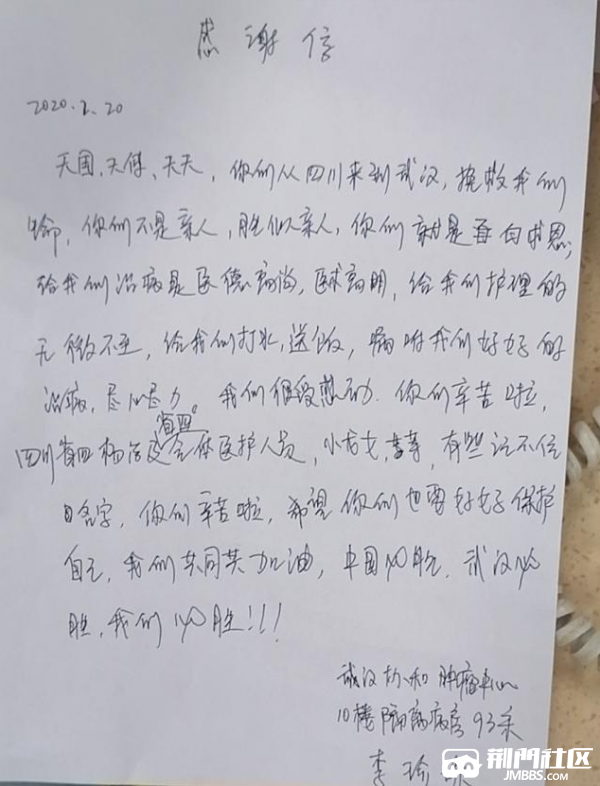 感谢信
2020.2.20
天国、天使、天天,你们从四川来到武汉,挽救我们
你们不是亲人,胜似亲人,你们就是白求恩;
给我们治病是医德高尚,医术高明,给我们护理的
无微不至,给我们打水,送饭,嘱咐我们好好的
治病,尽心尽力。我们很受感动.你们辛苦啦,
省四
四川省四 及全体医护人员,小 有些记不住
名字,你们辛苦啦,希望你们也要好好保护
自己,我们共同共加油,中国必胜,武汉必
胜,我们必胜!!!
武汉协和肿瘤中心
10楼隔离病房93床
李
荆門社区
JMBBS.COM